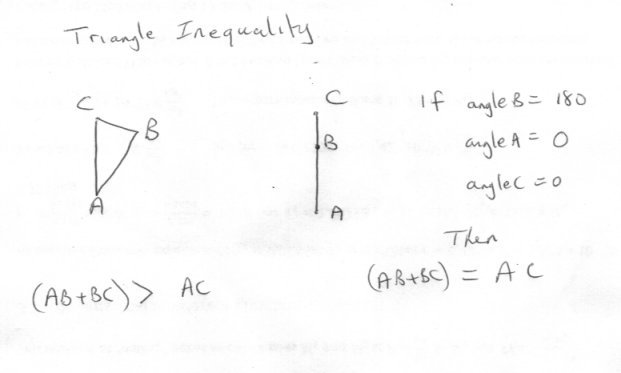 Triangle Inequality
C
B
A
(AB+BC) > AC
C
B
A
If angle B = 180
angle A = 0
angle C = 0
Then
(AB+BC) = AC